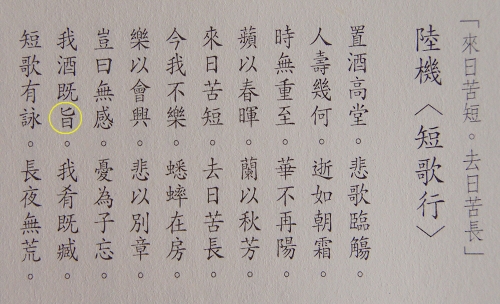 「來日苦短。去日苦長」
陸機〈短歌行〉
置酒高堂。悲歌臨觴。
人壽幾何。逝如朝霜。
時無重至。華不再陽。
蘋以春暉。蘭以秋芳。
來日苦短。去日苦長。
今我不樂。蟋蟀在房。
樂以會興。悲以別章。
豈曰無感。憂為子忘。
我酒既旨。我肴既臧。
短歌有詠。長夜無荒。